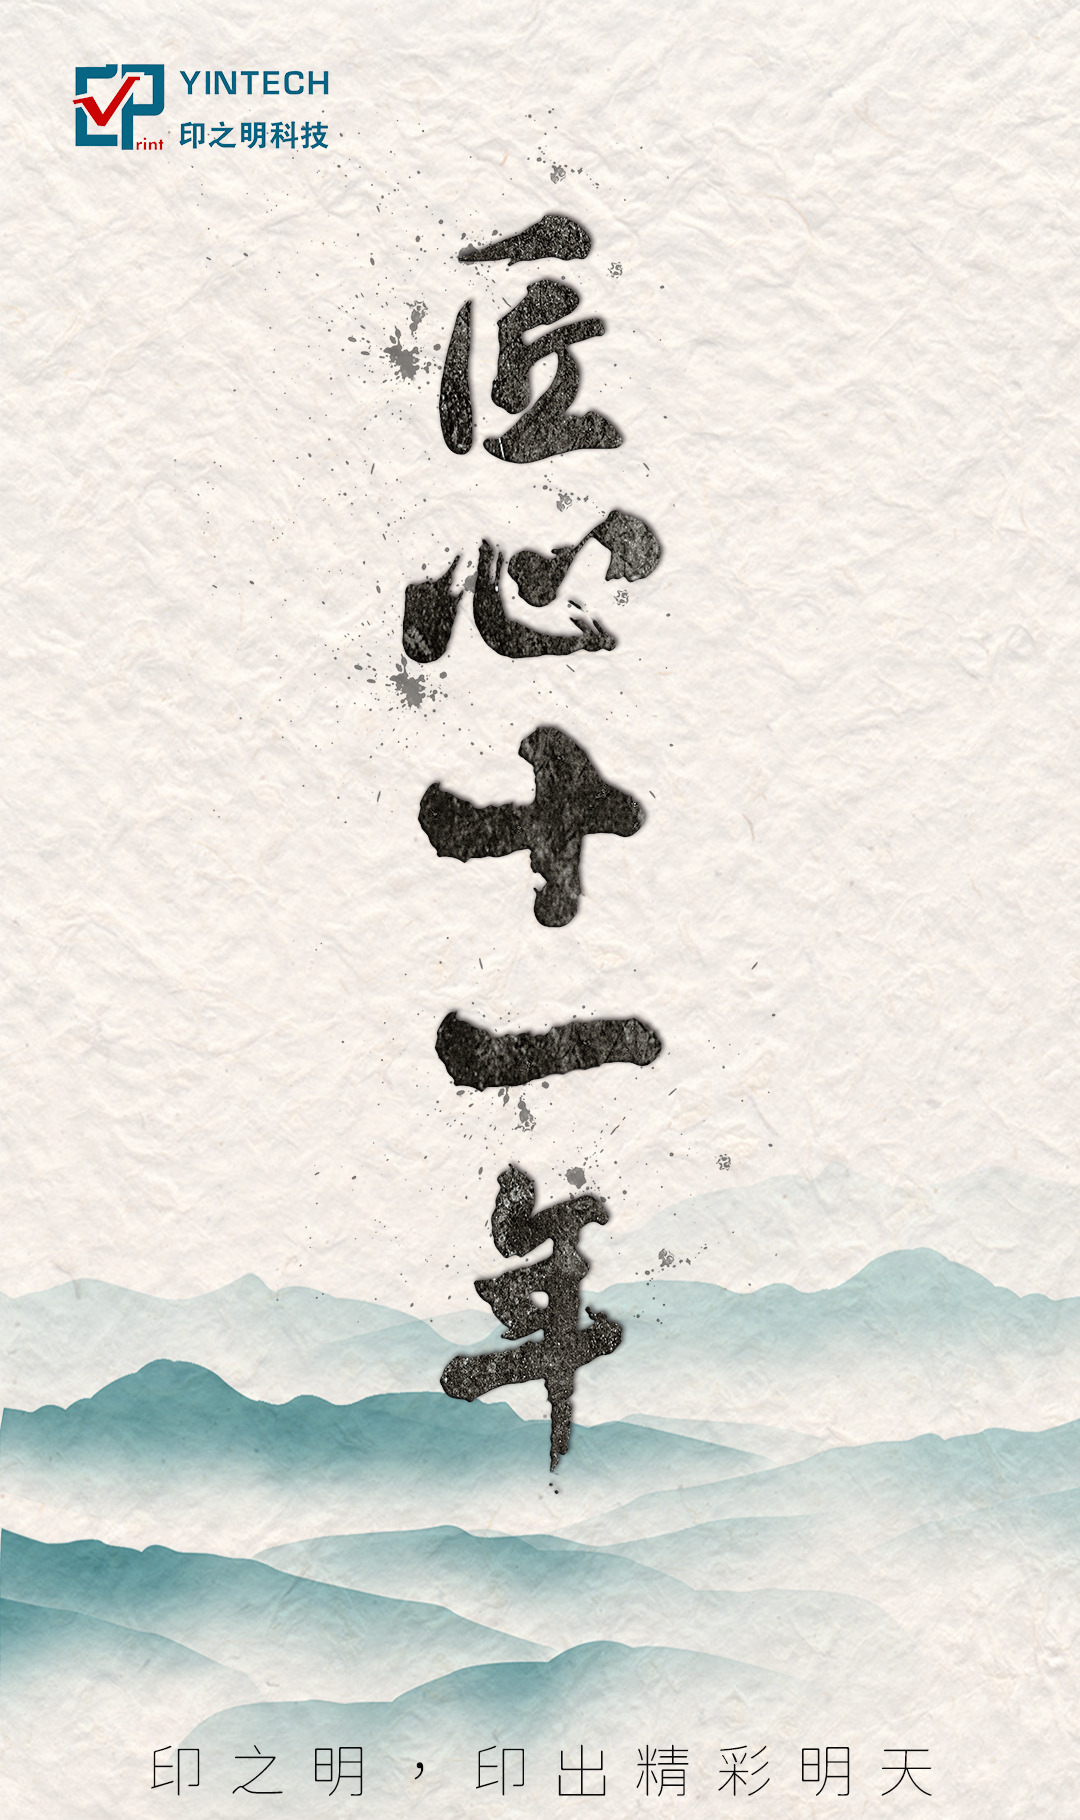 YINTECH
印之明科技
rint
匠心十一年
印之明，印出精彩明天